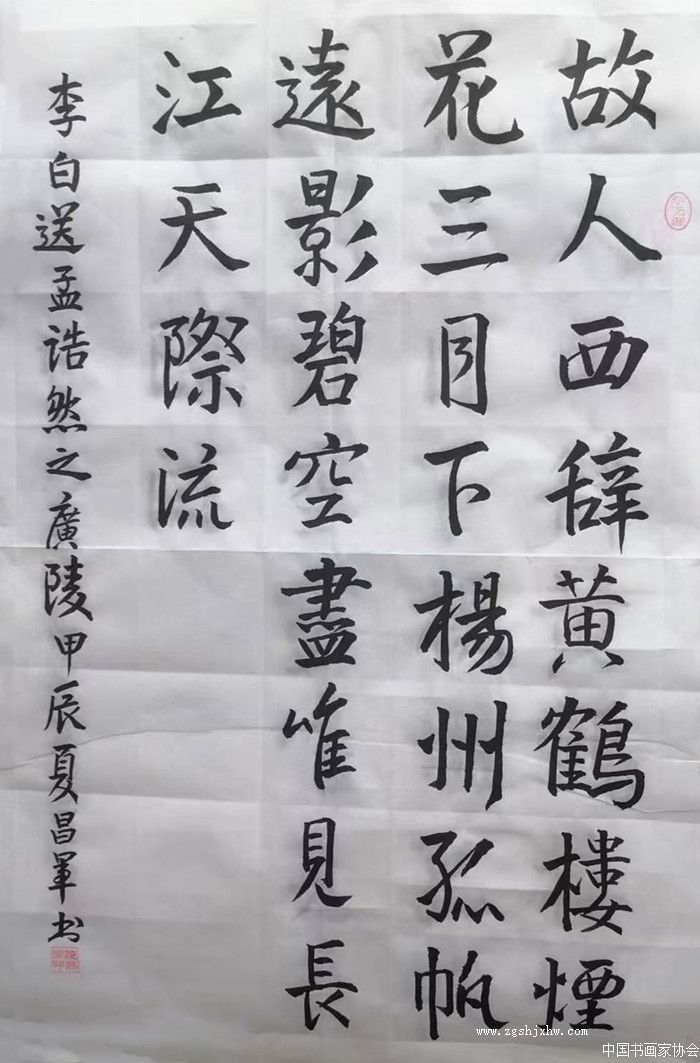 故人西辞黄鹤樓煙
花三月下楊州孤帆
遠影碧空盡唯見長
江天際流
李白送孟浩然之廣陵甲辰夏昌军书
www.zgshjxhw.com
中国书画家协会